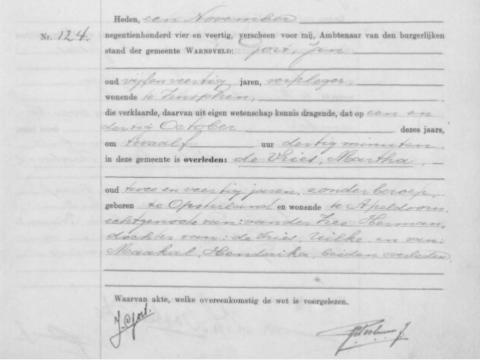 Heden, een November
Nr. 124. negentienhonderd vier en veertig, verscheen voor mij, Ambtenaar van den burgerlijken
stand der gemeente WARNSVELD: Gort, Jan
oud vijfenveertig jaren, verpleger,
wonende te Zutphen,
die verklaarde, daarvan uit eigen wetenschap kennis dragende, dat op een en
dertig October dezes jaars,
om twaalf uur dertig minuten
in deze gemeente is overleden: de Vries, Martha
oud twee en veertig jaren, zonder beroep,
geboren te Opsterland en wonende te Apeldoorn,
echtgenoote van: van der Zee, Herman,
dochter van: de Vries, Uilke en van:
Maakal, Hendrika, beiden overleden.
Waarvan akte, welke overeenkomstig de wet is voorgelezen.
J. Gort.